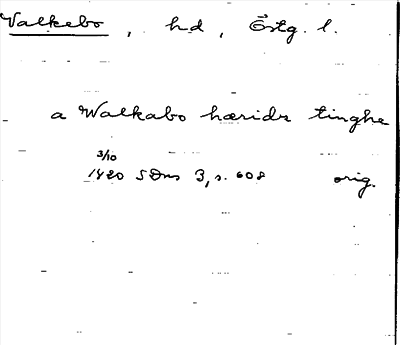 Valkebo, hd, Östg. l.
a Walkabo hæridz tinghe
3/10
1420 SDns 3, s. 608 orig.